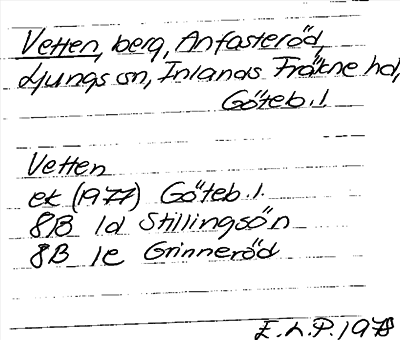 Vetten, berg, Anfasteröd,
Ljungs sn, Inlands Fräkne hd,
Göteb. l.
Vetten
ek (1977) Göteb. l.
8B 1d Stillingsön
8B 1e Grinneröd
E.L.P. 1978